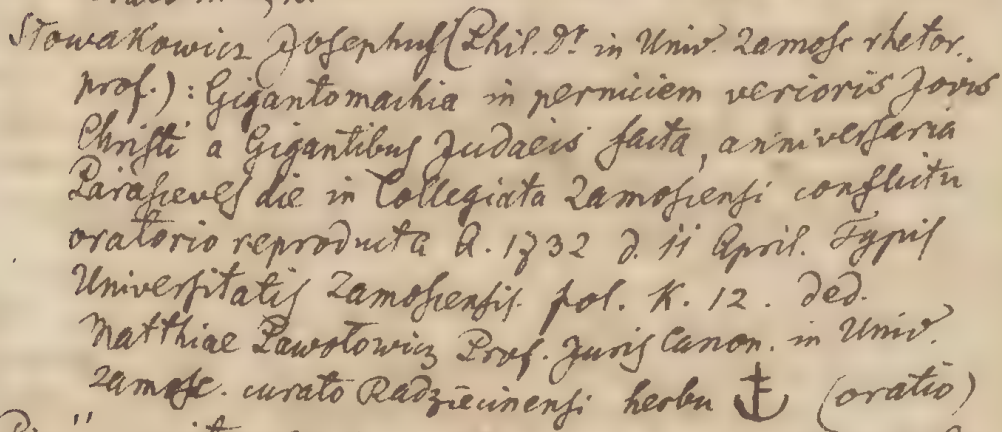 Słowakowicz Josephus (Phil. Dr in Univ. Zamosc rhetor.
prof.) : Gigantomachia in perniciem verioris Jovis
Christi a Gigantibus Judaeis facta, anniversaria
Parasceves die in Collegiata Zamoscensi conflictu
oratorio reproducta A. 1732 d. 11 April. Typis
Universitatis Zamoscensis. fol. K. 12. ded.
Matthiae Pawołowicz Prof. Juris Canon. in Univ.
Zamosc. curato Radziecinensi herbu (oratio)